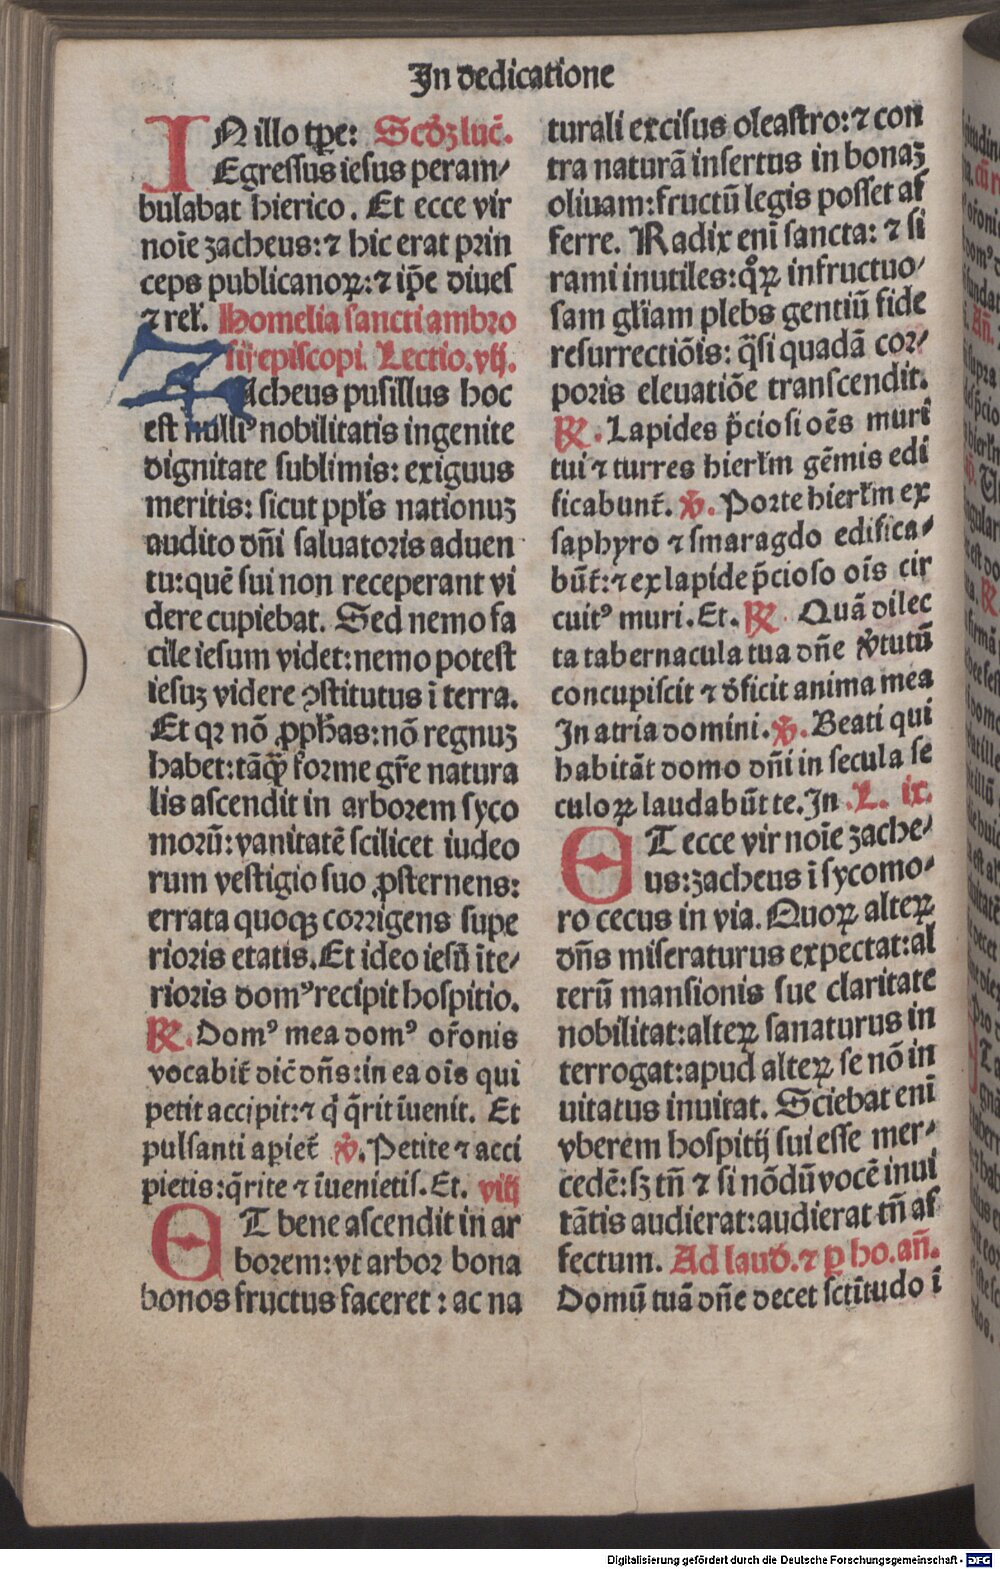 In dedicatione
IN illo tꝑe: Scꝺ̄ꝫ luc̄.
Egressus iesus peram⸗
bulabat hierico. Et ecce vir
noīe zacheus: ⁊ hic erat prin
ceps publicanoꝝ: ⁊ ip̄e diues
⁊ rel̄. Homelia sancti ambro
sij episcopi. Lectio. vij.
Zacheus pusillus hoc
est nulliꝰ nobilitatis ingenite
dignitate sublimis: exiguus
meritis: sicut ppl̄s nationuꝫ
audito dn̄i saluatoris aduen
tu: quē sui non receperant vi
dere cupiebat. Sed nemo fa
cile iesum videt: nemo potest
iesuꝫ videre ꝯstitutus ī terra.
Et qꝛ nō ꝓph̄as: nō regnuꝫ
habet: tāꝙ̄ forme gr̄e natura
lis ascendit in arborem syco
morū: vanitatē scilicet iudeo
rum vestigio suo ꝓsternens:
errata quoqꝫ corrigens supe
rioris etatis. Et ideo iesū īte⸗
rioris domꝰ recipit hospitio.
℟. Domꝰ mea domꝰ or̄onis
vocabit̄ dic̄ dn̄s: in ea oīs qui
petit accipit: ⁊ q̇ q̄rit īuenit. Et
pulsanti apiet̄ ℣. Petite ⁊ acci
pietis: q̄rite ⁊ īuenietis. Et. viij
ET bene ascendit in ar
borem: vt arbor bona
bonos fructus faceret: ac na
turali excisus oleastro: ⁊ con
tra naturā insertus in bonaꝫ
oliuam: fructū legis posset af
ferre. Radix enī sancta: ⁊ si
rami inutiles: qͦꝝ infructuo⸗
sam gl̄iam plebs gentiū fide
resurrectiōis: q̄si quadā cor⸗
poris eleuatiōe transcendit.
℟. Lapides p̄ciosi oēs muri
tui ⁊ turres hierl̄m gēmis edi
ficabunt̄. ℣. Porte hierl̄m ex
saphyro ⁊ smaragdo edifica⸗
būt̄: ⁊ ex lapide p̄cioso oīs cir
cuitꝰ muri. Et. ℟. Quā dilec
ta tabernacula tua dn̄e v̄tutū
concupiscit ⁊ d̄ficit anima mea
In atria domini. ℣. Beati qui
habitāt domo dn̄i in secula se
culoꝝ laudabūt te. In .L. ix.
ET ecce vir noīe zache⸗
us: zacheus ī sycomo⸗
ro cecus in via. Quoꝝ alteꝝ
dn̄s miseraturus expectat: al
terū mansionis sue claritate
nobilitat: alteꝝ sanaturus in
terrogat: apud alteꝝ se nō in
uitatus inuitat. Sciebat enī
vberem hospitij sui esse mer⸗
cedē: sꝫ tn̄ ⁊ si nōdū vocē inui
tātis audierat: audierat tn̄ af
fectum. Ad laud̄. ⁊ ꝑ ho. an̄.
Domū tuā dn̄e decet sctītudo ī
Digitalisierung gefördert durch die Deutsche Forschungsgemeinschaft - DFG